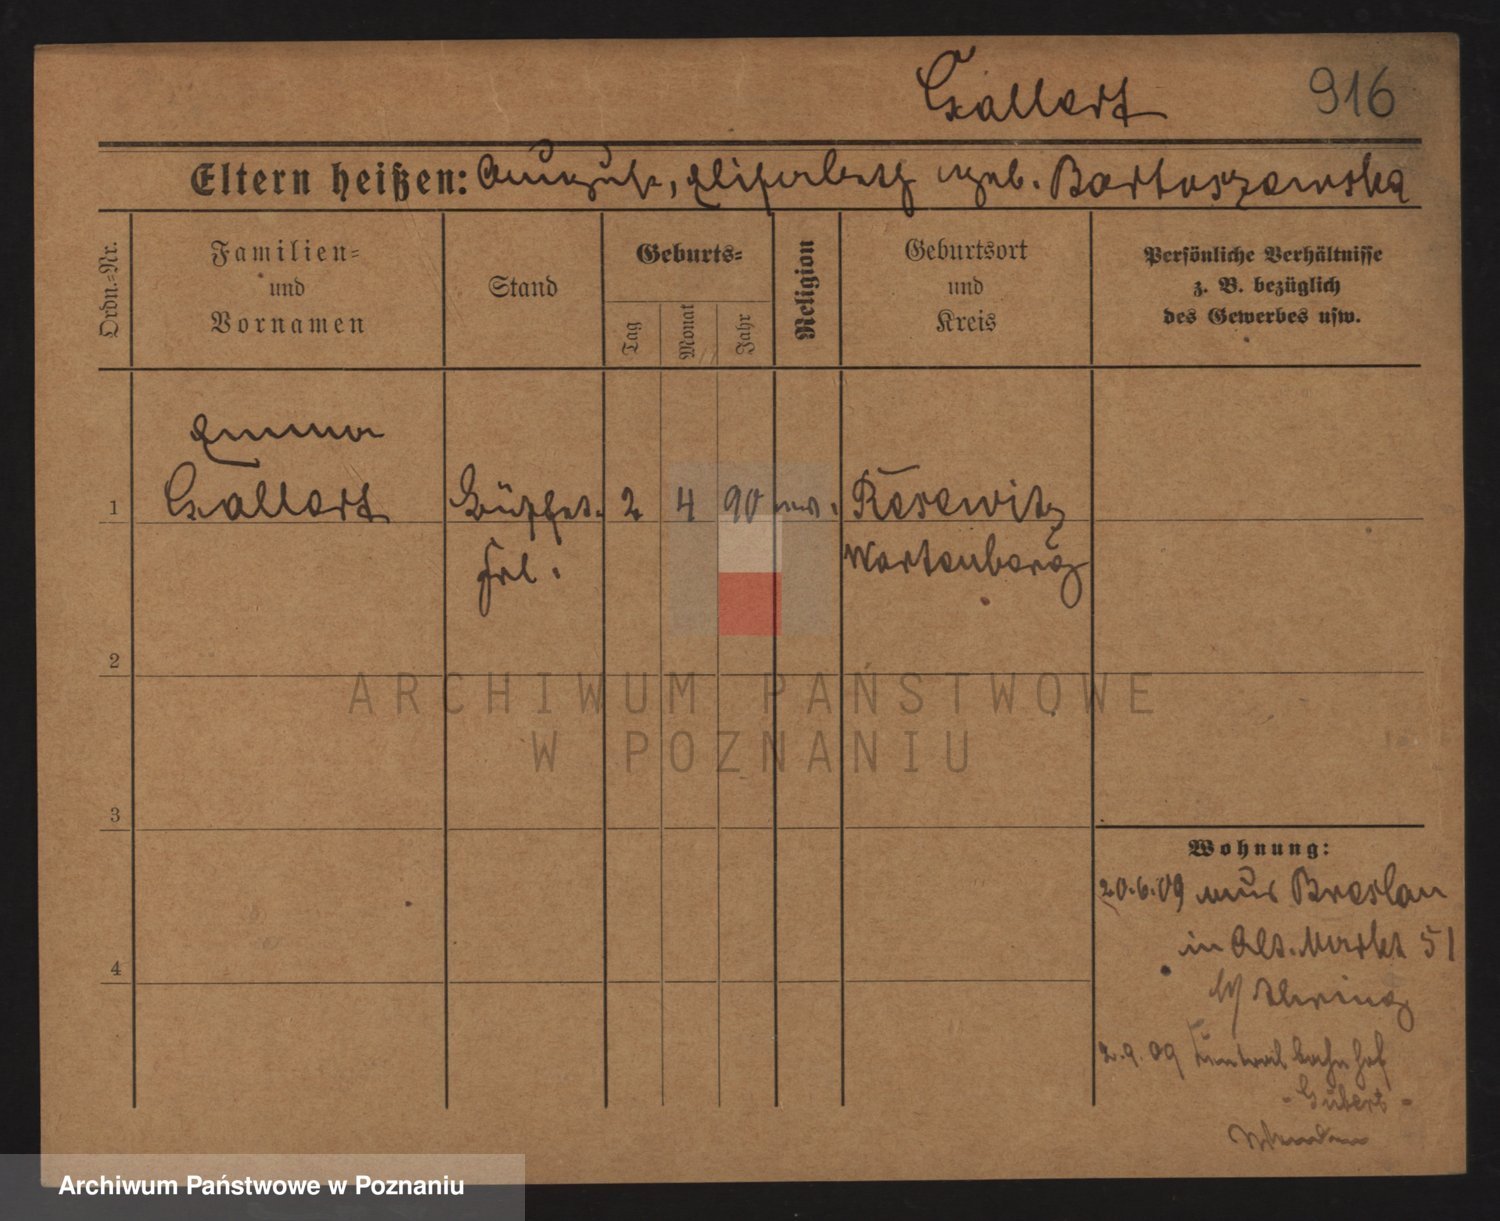 Gallert 916
Eltern heißen: August, Elisabeth geb. Bartoszewska
Ordn.-Nr.
Familien=
und
Vornamen
Stand
Geburts=
Tag
Monat
Jahr
Religion
Geburtsort
und
Kreis
Persönliche Verhältnisse
z. B. bezüglich
des Gewerbes usw.
Emma
1 Gallert Büffet. 2 4 90 ev. Resewitz
Frl. Wartenberg
2
ARCHIWUM PAŃSTWOWE
W POZNANIU
3
Wohnung:
20.6.09 aus Breslau
in Alt. Markt 51
4
b/ Thring
2.9.09 Zentralbahnhof
Archiwum Państwowe w Poznaniu